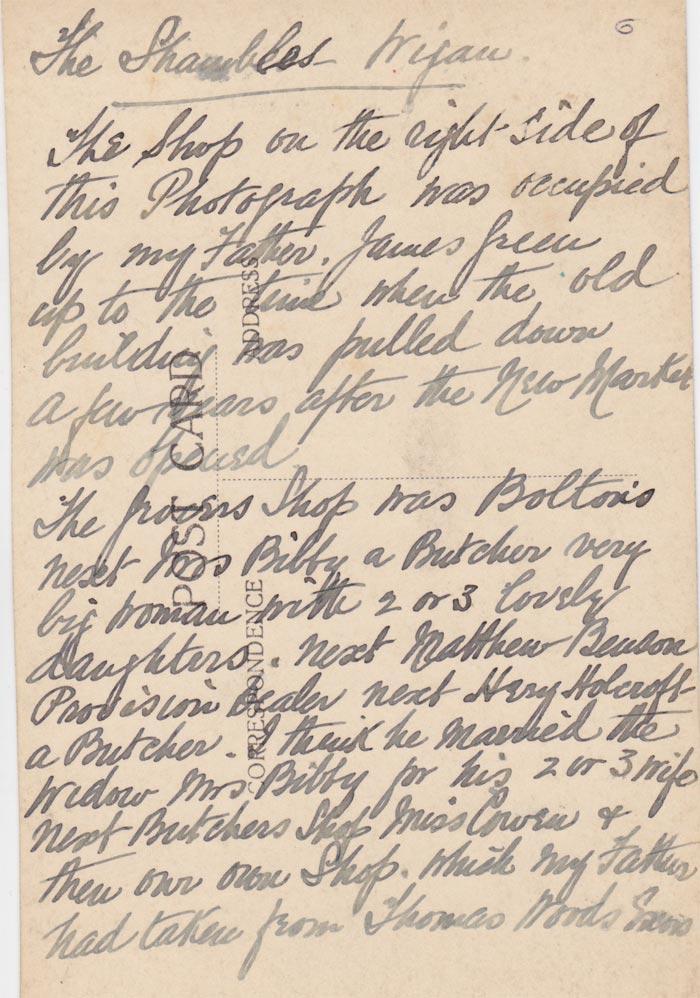 6
The Shambles Wigan.
The Shop on the right side of
this Photograph was occupied
by my Father. James Green
up to the time when the old
building was pulled down
a few years after the New Market
was opened
The Grocers Shop was Bolton's
next Mrs Bibby a Butcher very
big woman with 2 or 3 lovely
daughters. next Matthew Benson
Provision dealer next Hery Holcroft
a Butcher. I think he married the
widow Mrs Bibby for his 2 or 3 wife
next Butchers Shop Miss Cowen &
then our own Shop. which my Father
had taken from Thomas Woods
POST CARD
CORRESPONDENCE
ADDRESS